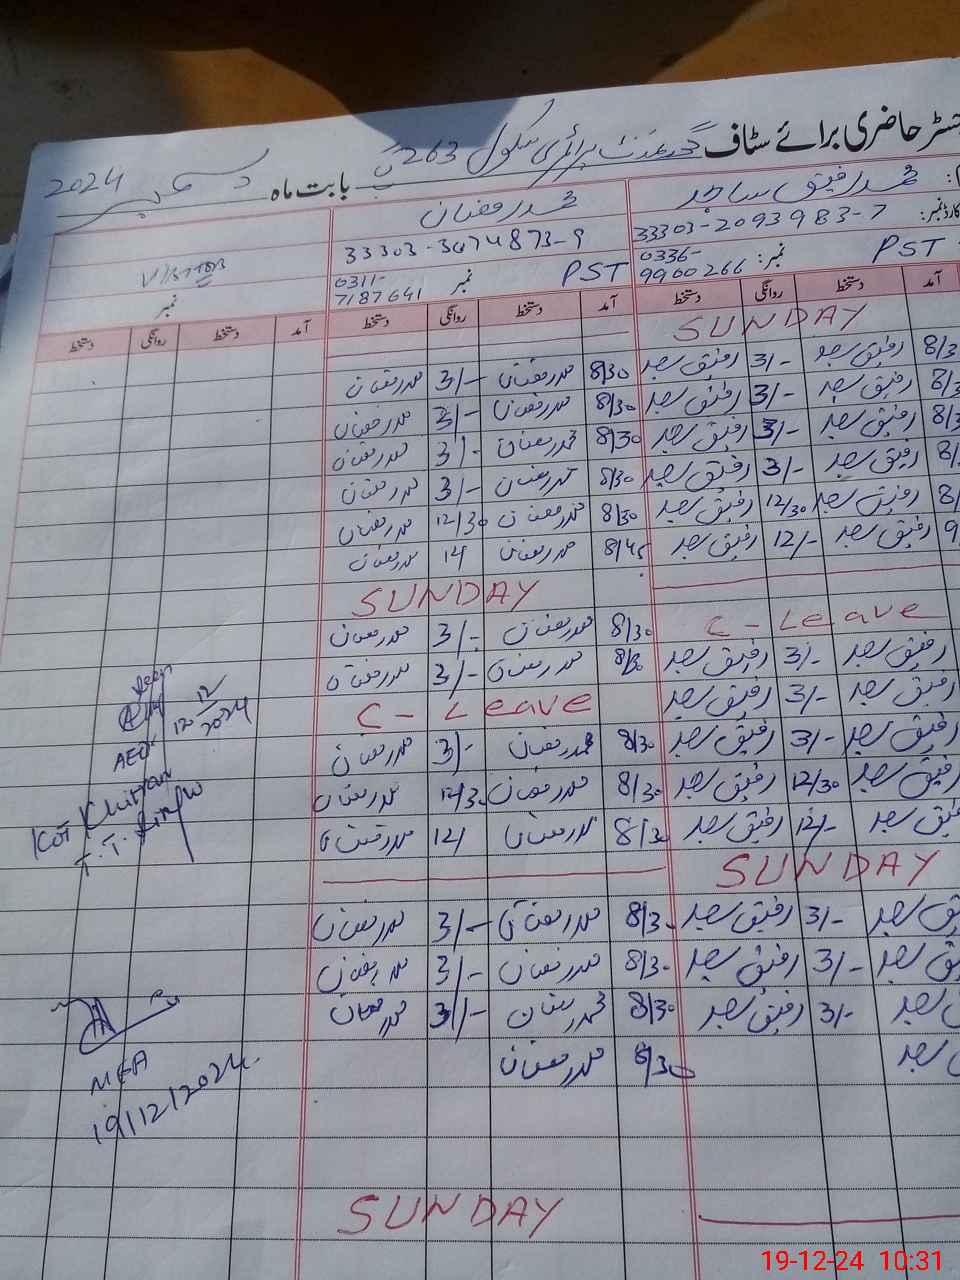 رجسٹر حاضری برائے سٹاف گورنمنٹ پرائمری سکول 263 گ ب بابت ماہ دسمبر 2024
محمد رفیق ساجد محمد رمضان
کارڈ نمبر: 33303-2093983-7 33303-3074873-9 VISITORS
PST نمبر: 0336-9900266 PST نمبر 0311-7187641 نمبر
آمد دستخط روانگی دستخط آمد دستخط روانگی دستخط آمد دستخط روانگی دستخط
SUNDAY
8/3 رفیق ساجد 3/- رفیق ساجد 8/30 محمد رمضان 3/- محمد رمضان
8/3 رفیق ساجد 3/- رفیق ساجد 8/30 محمد رمضان 3/- محمد رمضان
8/3 رفیق ساجد 3/- رفیق ساجد 8/30 محمد رمضان 3/- محمد رمضان
8/ رفیق ساجد 3/- رفیق ساجد 8/30 محمد رمضان 3/- محمد رمضان
8/ رفیق ساجد 12/30 رفیق ساجد 8/30 محمد رمضان 12/30 محمد رمضان
9 رفیق ساجد 12/- رفیق ساجد 8/45 محمد رمضان 12/ محمد رمضان
SUNDAY
C-Leave 8/30 محمد رمضان 3/- محمد رمضان
رفیق ساجد 3/- رفیق ساجد 8/30 محمد رمضان 3/- محمد رمضان
رفیق ساجد 3/- رفیق ساجد C-Leave
رفیق ساجد 3/- رفیق ساجد 8/30 محمد رمضان 3/- محمد رمضان
رفیق ساجد 12/30 رفیق ساجد 8/30 محمد رمضان 12/30 محمد رمضان
رفیق ساجد 12/- رفیق ساجد 8/30 محمد رمضان 12/ محمد رمضان
SUNDAY
رفیق ساجد 3/- رفیق ساجد 8/30 محمد رمضان 3/- محمد رمضان
رفیق ساجد 3/- رفیق ساجد 8/30 محمد رمضان 3/- محمد رمضان
ساجد 3/- رفیق ساجد 8/30 محمد رمضان 3/- محمد رمضان
ساجد 8/30 محمد رمضان
SUNDAY
Seen
AEO
12-12/2024
Kot Khitran
T.T. Singh
MEA
19/12/2024
19-12-24 10:31